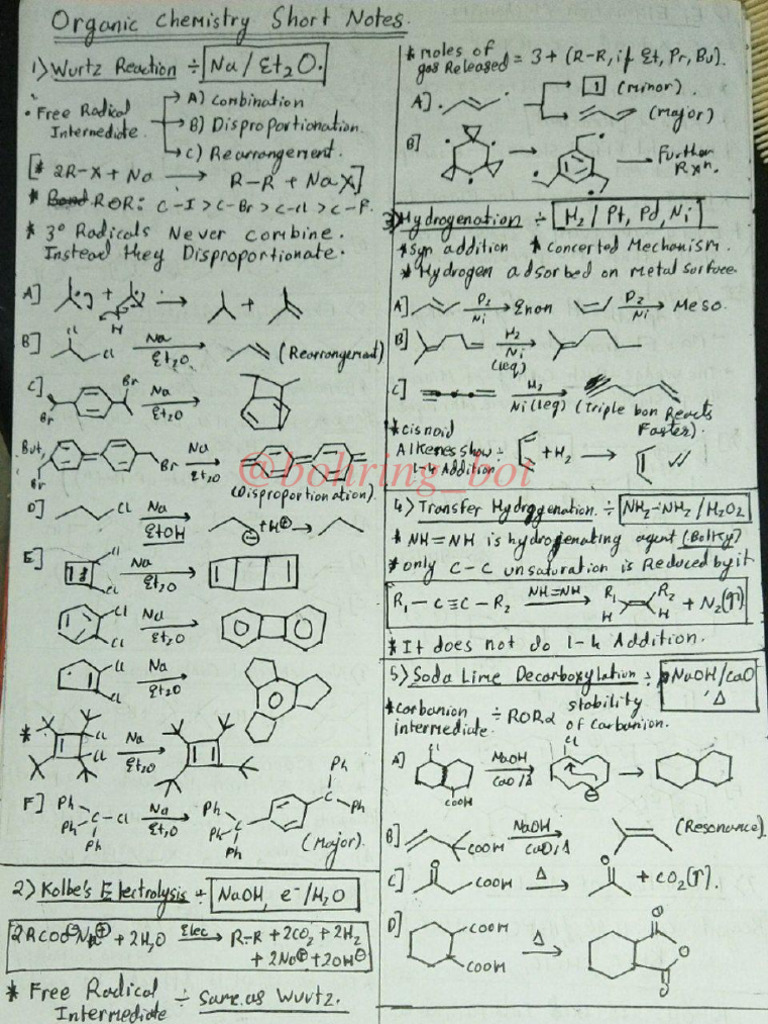 Organic Chemistry Short Notes.
1) Wurtz Reaction ÷ Na / Et2O.
• Free Radical Intermediate
A) Combination
B) Disproportionation
C) Rearrangement.
[* 2R-X + Na → R-R + NaX]
* ROR: C-I > C-Br > C-Cl > C-F.
* 3° Radicals Never Combine.
Instead they Disproportionate.
A] + → +
H
B] Cl Cl Na Et2O → (Rearrangement)
C] Br Br Na Et2O →
But, Br Br Na Et2O →
(Disproportionation).
D] Cl Na EtOH → ⊖ + H⊕ →
E] Cl Cl Na Et2O →
Cl Cl Na Et2O →
Cl Cl Na Et2O →
* Cl Cl Na Et2O →
F] Ph Ph Ph C-Cl Na Et2O → Ph Ph Ph C C Ph Ph Ph
(Major).
2) Kolbe's Electrolysis ÷ NaOH, e⁻/H2O
2RCOO⊖Na⊕ + 2H2O Elec → R-R + 2CO2 + 2H2
+ 2Na⊕ + 2OH⊖
* Free Radical Intermediate ÷ Same as Wurtz.
* moles of gas Released = 3 + (R-R, if Et, Pr, Bu).
A] • • → (minor)
(major)
B] → → Further Rxn.
3) Hydrogenation ÷ H2 / Pt, Pd, Ni
* Syn addition * Concerted Mechanism.
* Hydrogen adsorbed on metal surface
A] D2 Ni → D2 Ni → Meso.
B] H2 Ni (1eq) →
C] H2 Ni (1eq) → (Triple bon Reacts Faster).
* cisnoid
Alkenes show ÷ + H2 →
1-4 Addition
4) Transfer Hydrogenation ÷ NH2-NH2 / H2O2
* NH=NH is hydrogenating agent
* only C-C unsaturation is Reduced by it
R1 - C≡C - R2 NH=NH → R1 R2 H H + N2(↑)
* It does not do 1-4 Addition.
5) Soda Lime Decarboxylation ÷ NaOH/CaO, Δ
* Carbanion intermediate ÷ ROR α stability of Carbanion.
A] Cl COOH NaOH CaO/Δ → Cl ⊖ →
B] COOH NaOH CaO,Δ → (Resonance).
C] O COOH Δ → O + CO2(↑).
D] COOH COOH Δ → O O O
@bohring_bot